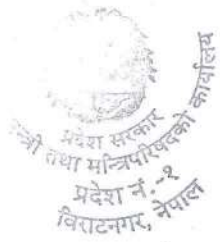 प्रदेश सरकार
मन्त्री तथा मन्त्रिपरिषद्को कार्यालय
प्रदेश नं.-१
विराटनगर, नेपाल